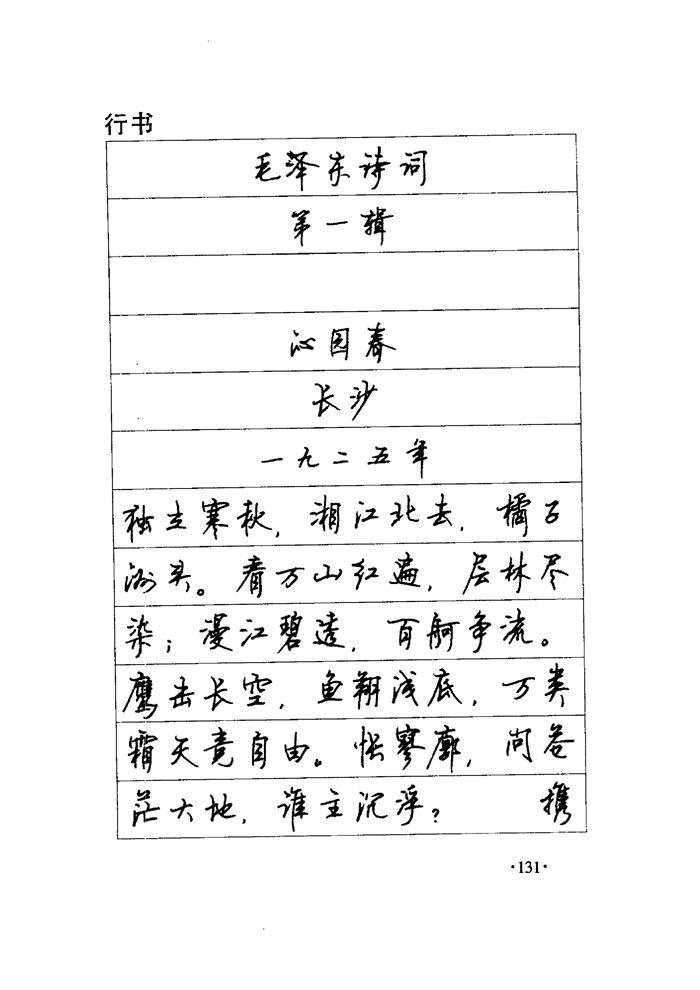 行书
毛泽东诗词
第一辑
沁园春
长沙
一九二五年
独立寒秋，湘江北去，橘子
洲头。看万山红遍，层林尽
染；漫江碧透，百舸争流。
鹰击长空，鱼翔浅底，万类
霜天竞自由。怅寥廓，问苍
茫大地，谁主沉浮？ 携
·131·